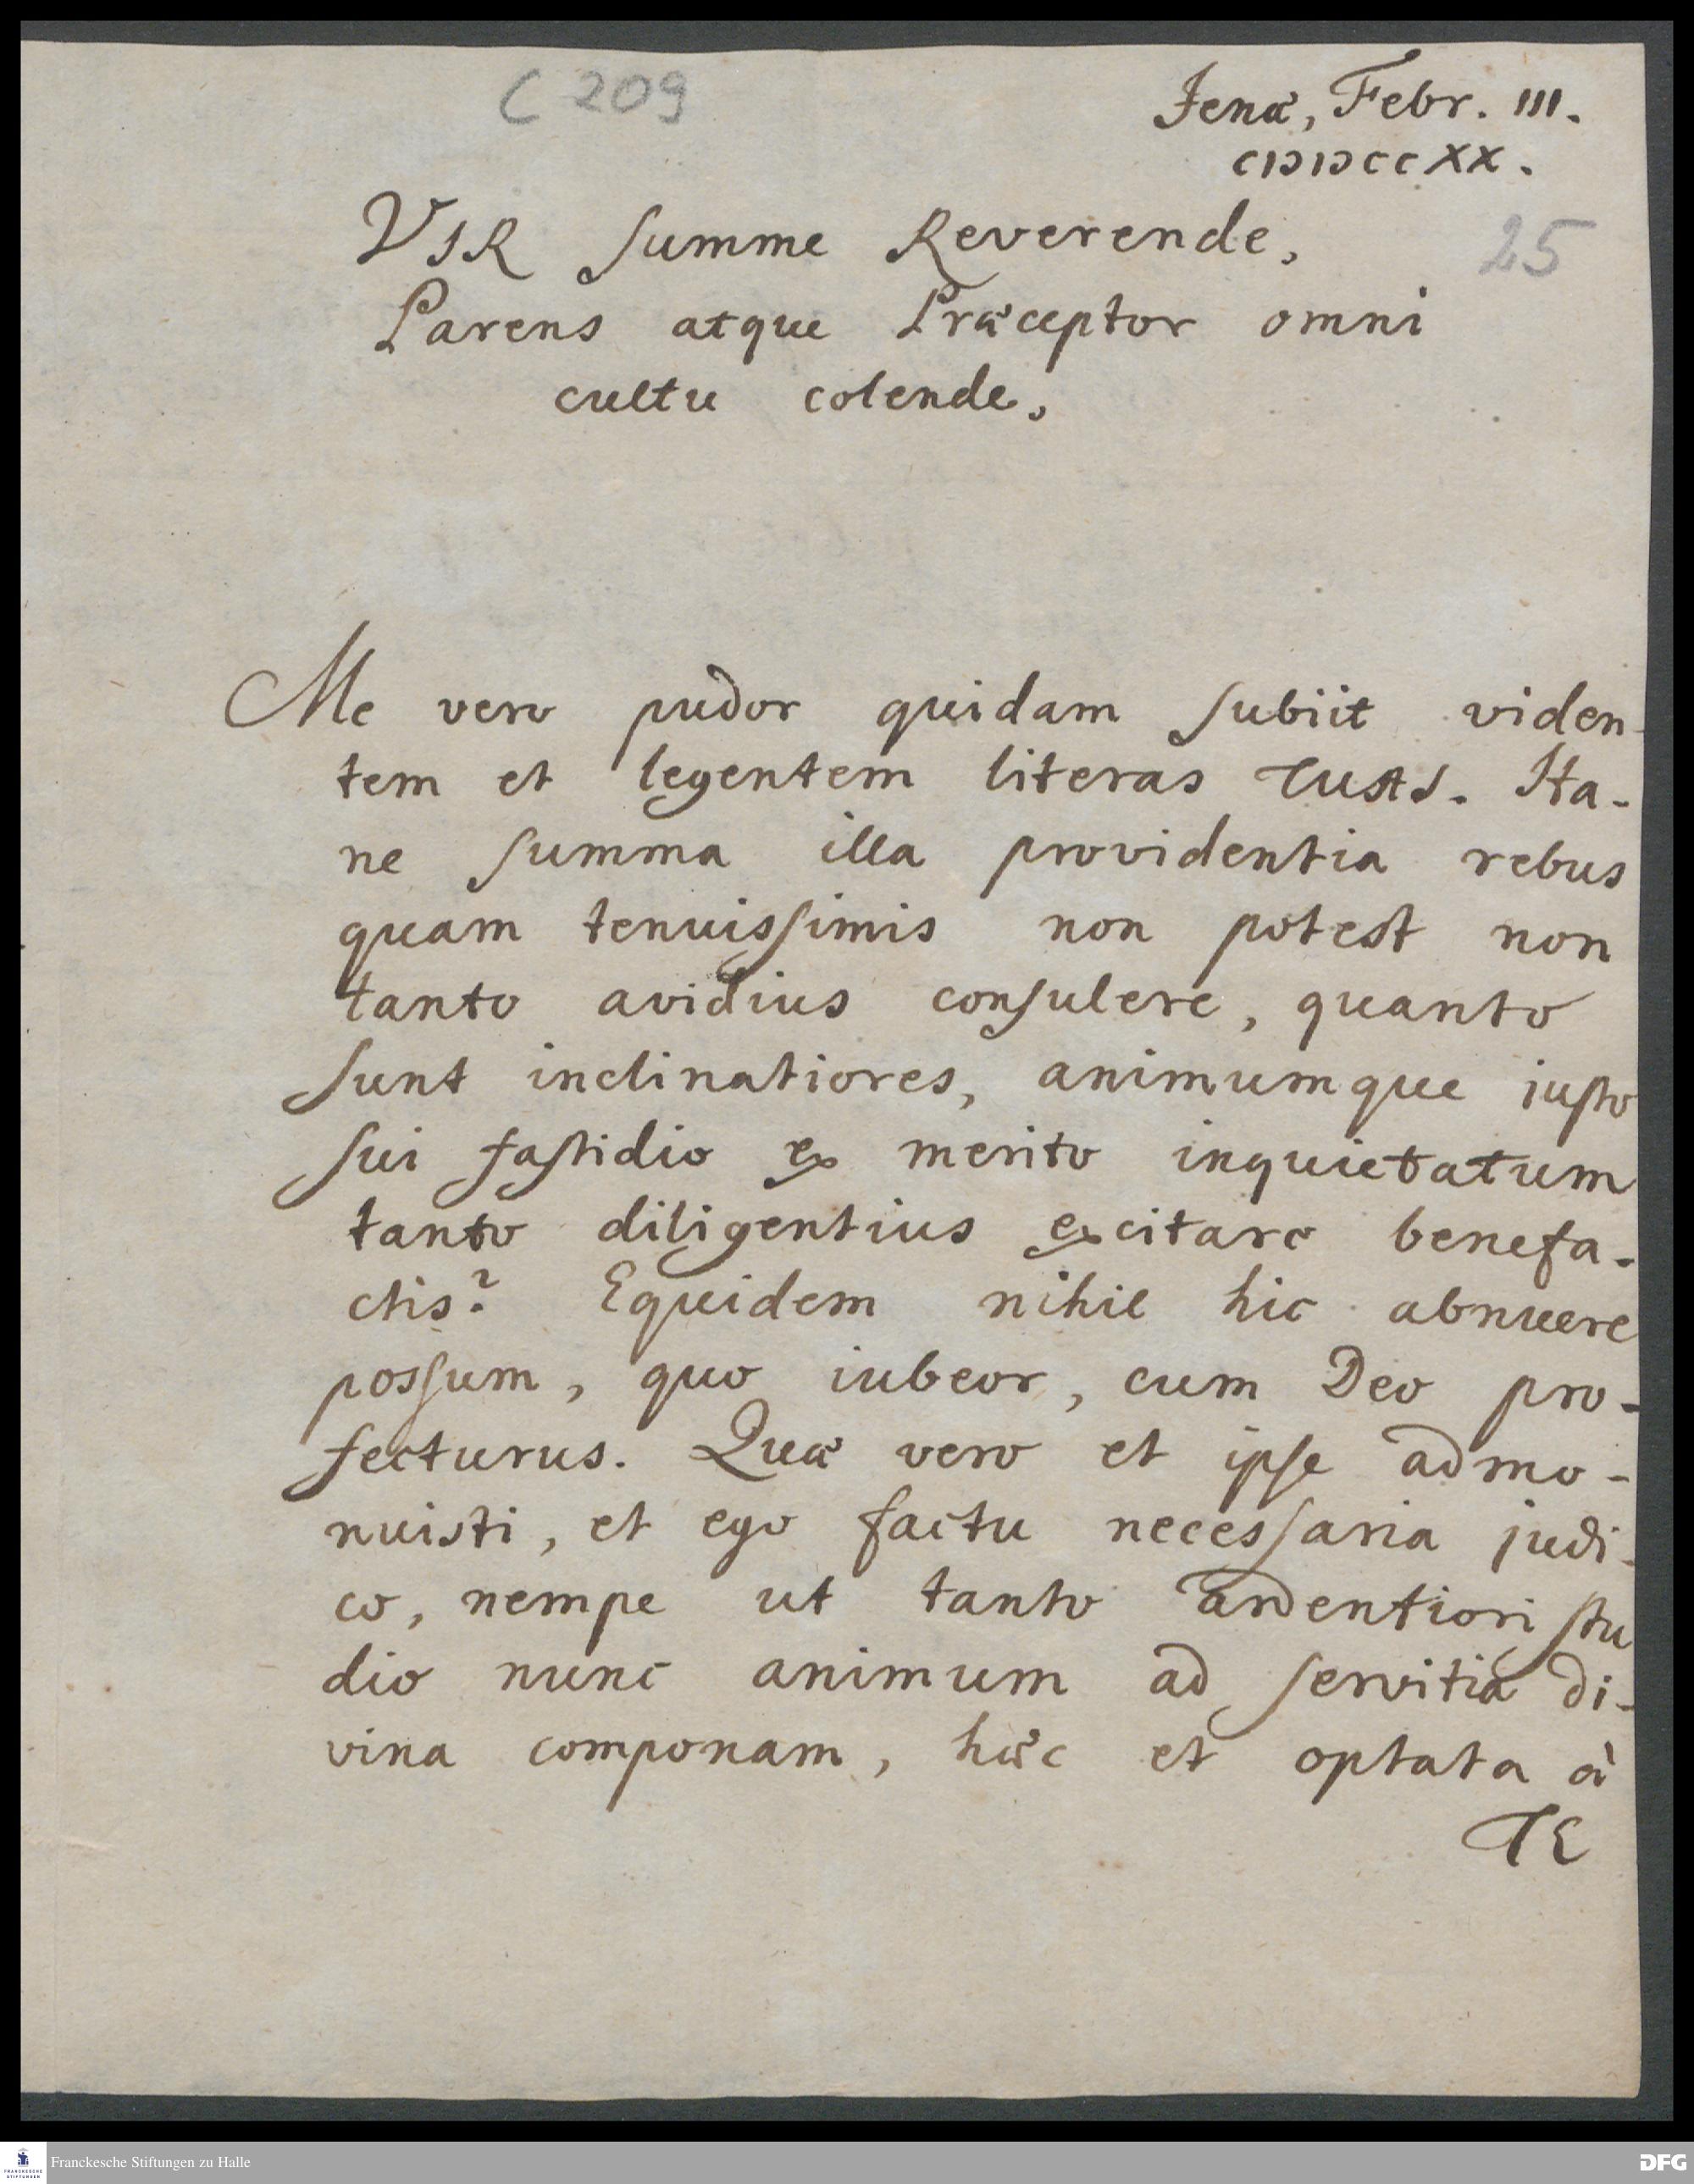 C 209
Jenæ, Febr. III.
CIƆIƆCCXX.
VIR summe Reverende,
25
Parens atque Præceptor omni
cultu colende,
Me vero pudor quidam subiit viden-
tem et legentem literas TUAS. Ita-
ne summa illa providentia rebus
quam tenuissimis non potest non
tanto avidius consulere, quanto
sunt inclinatiores, animumque iusto
sui fastidio ex merito inquietatum
tanto diligentius excitare benefa-
ctis? Equidem nihil hic abnuere
possum, quo iubeor, cum Deo pro-
fecturus. Quæ vero et ipse admo-
nuisti, et ego factu necessaria judi-
co, nempe ut tanto ardentiori stu
dio nunc animum ad servitia di-
vina componam, hæc et optata à
TE
Franckesche Stiftungen zu Halle
FRANCKESCHE
STIFTUNGEN
DFG